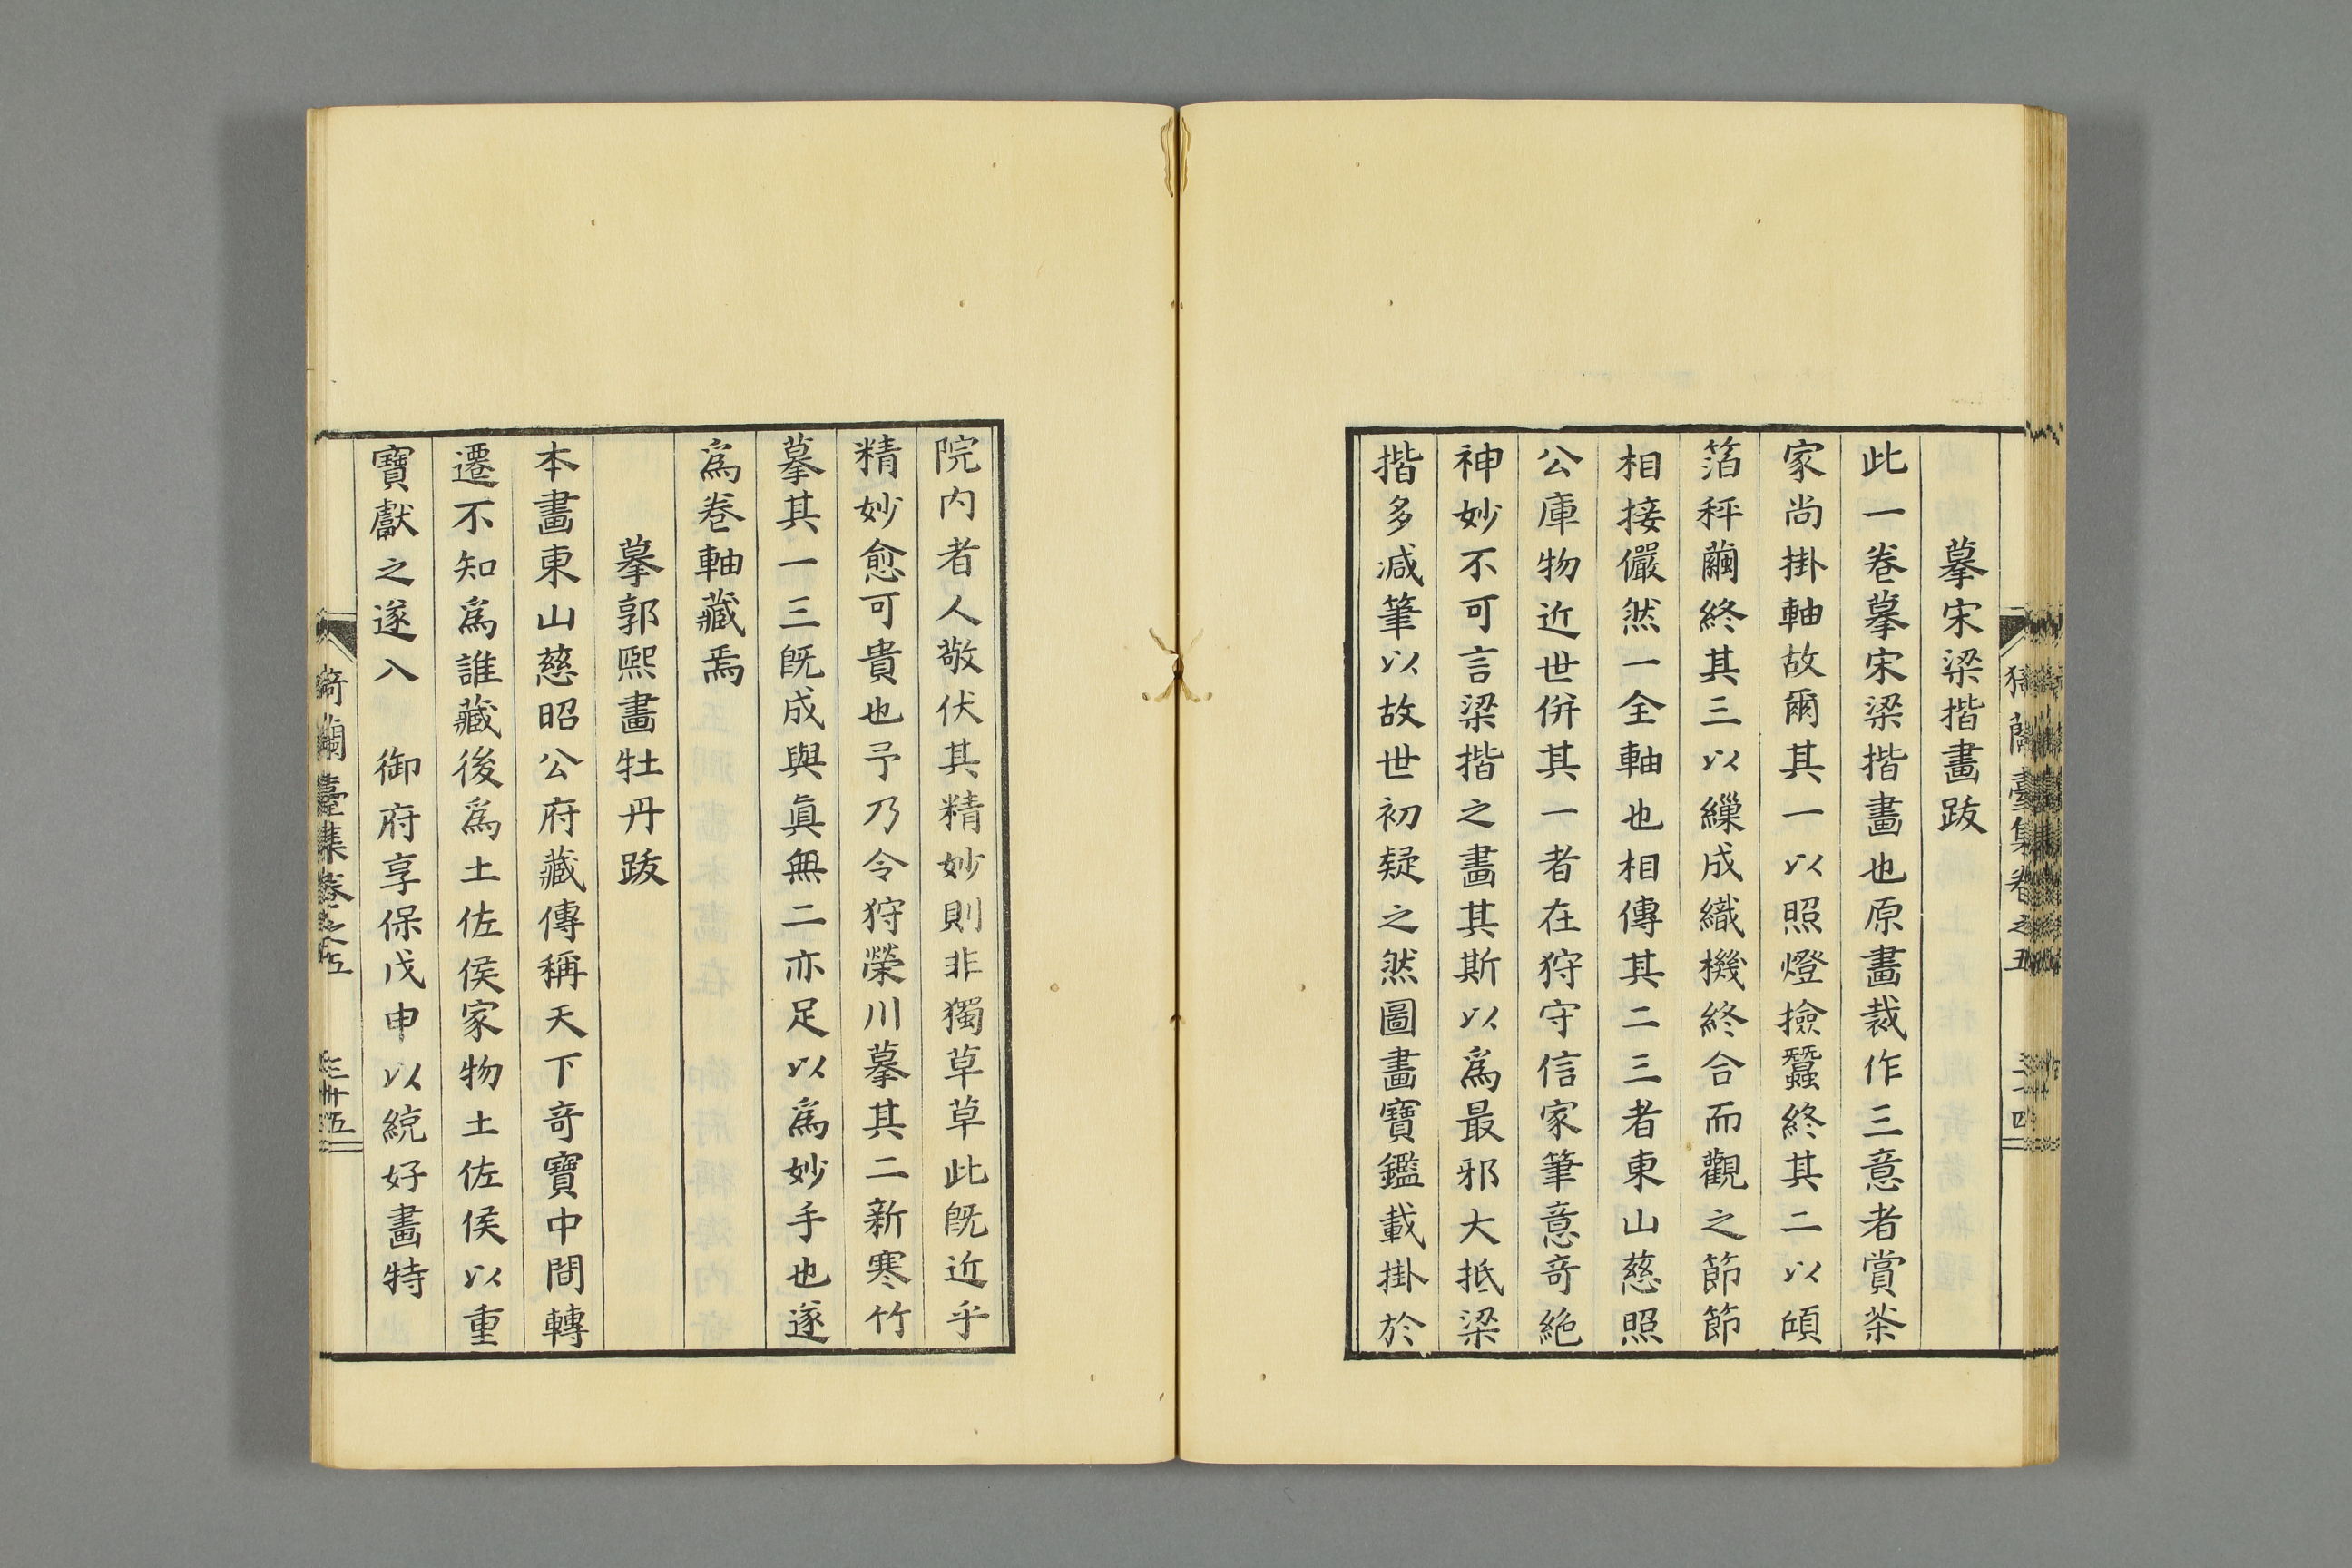 摹宋梁揩畫跋
此一卷摹宋梁揩畫也原畫裁作三意者賞茶
家尚掛軸故爾其一以照燈撿蠶終其二以頎
箔秤繭終其三以繅成織機終合而觀之節節
相接儼然一全軸也相傳其二三者東山慈照
公庫物近世併其一者在狩守信家筆意奇絶
神妙不可言梁揩之畫其斯以爲最邪大抵梁
揩多减筆以故世初疑之然圖畫寶鑑載掛於
院内者人敬伏其精妙則非獨草草此既近乎
精妙愈可貴也予乃令狩榮川摹其二新寒竹
摹其一三既成與眞無二亦足以爲妙手也遂
爲卷軸藏焉
摹郭熙畫牡丹跋
本畫東山慈昭公府藏傳稱天下奇寶中間轉
遷不知爲誰藏後爲土佐侯家物土佐侯以重
寶獻之遂入　御府享保戊申以統好畫特
猗蘭臺集卷之五
三十五